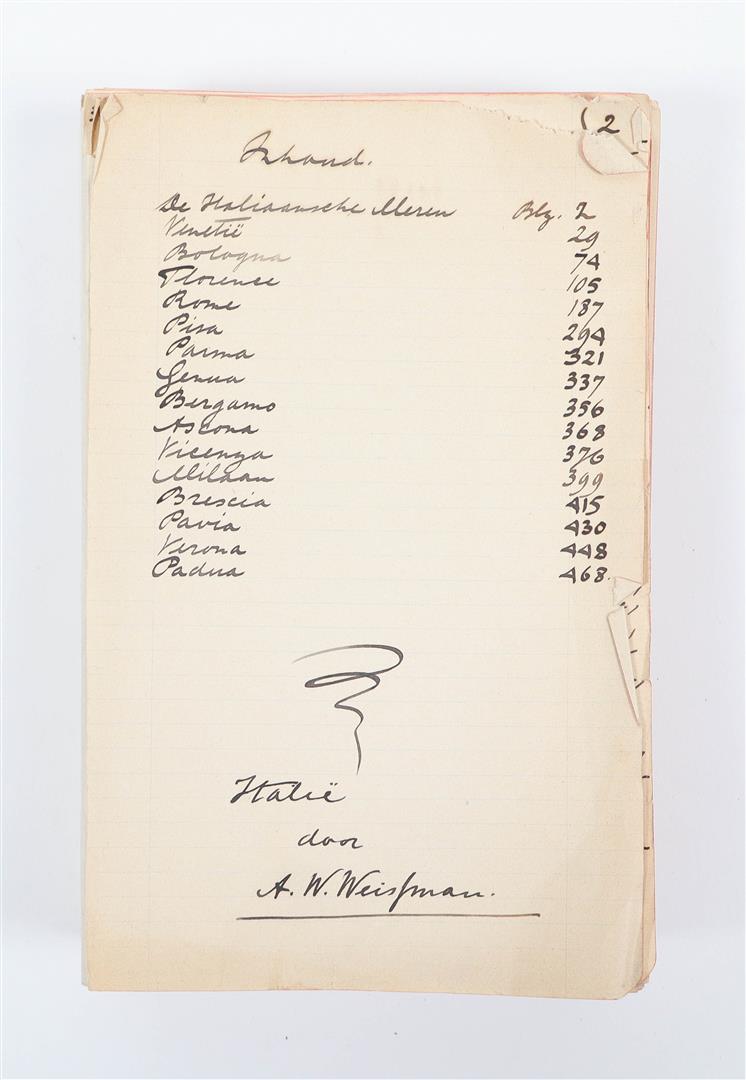 ( 2
Inhoud.
De Italiaansche Meren Blz. 2
Venetië 29
Bologna 74
Florence 105
Rome 187
Pisa 294
Parma 321
Genua 337
Bergamo 356
Ascona 368
Vicenza 376
Milaan 399
Brescia 415
Pavia 430
Verona 448
Padua 468.
Italië
door
A. W. Weisſman.